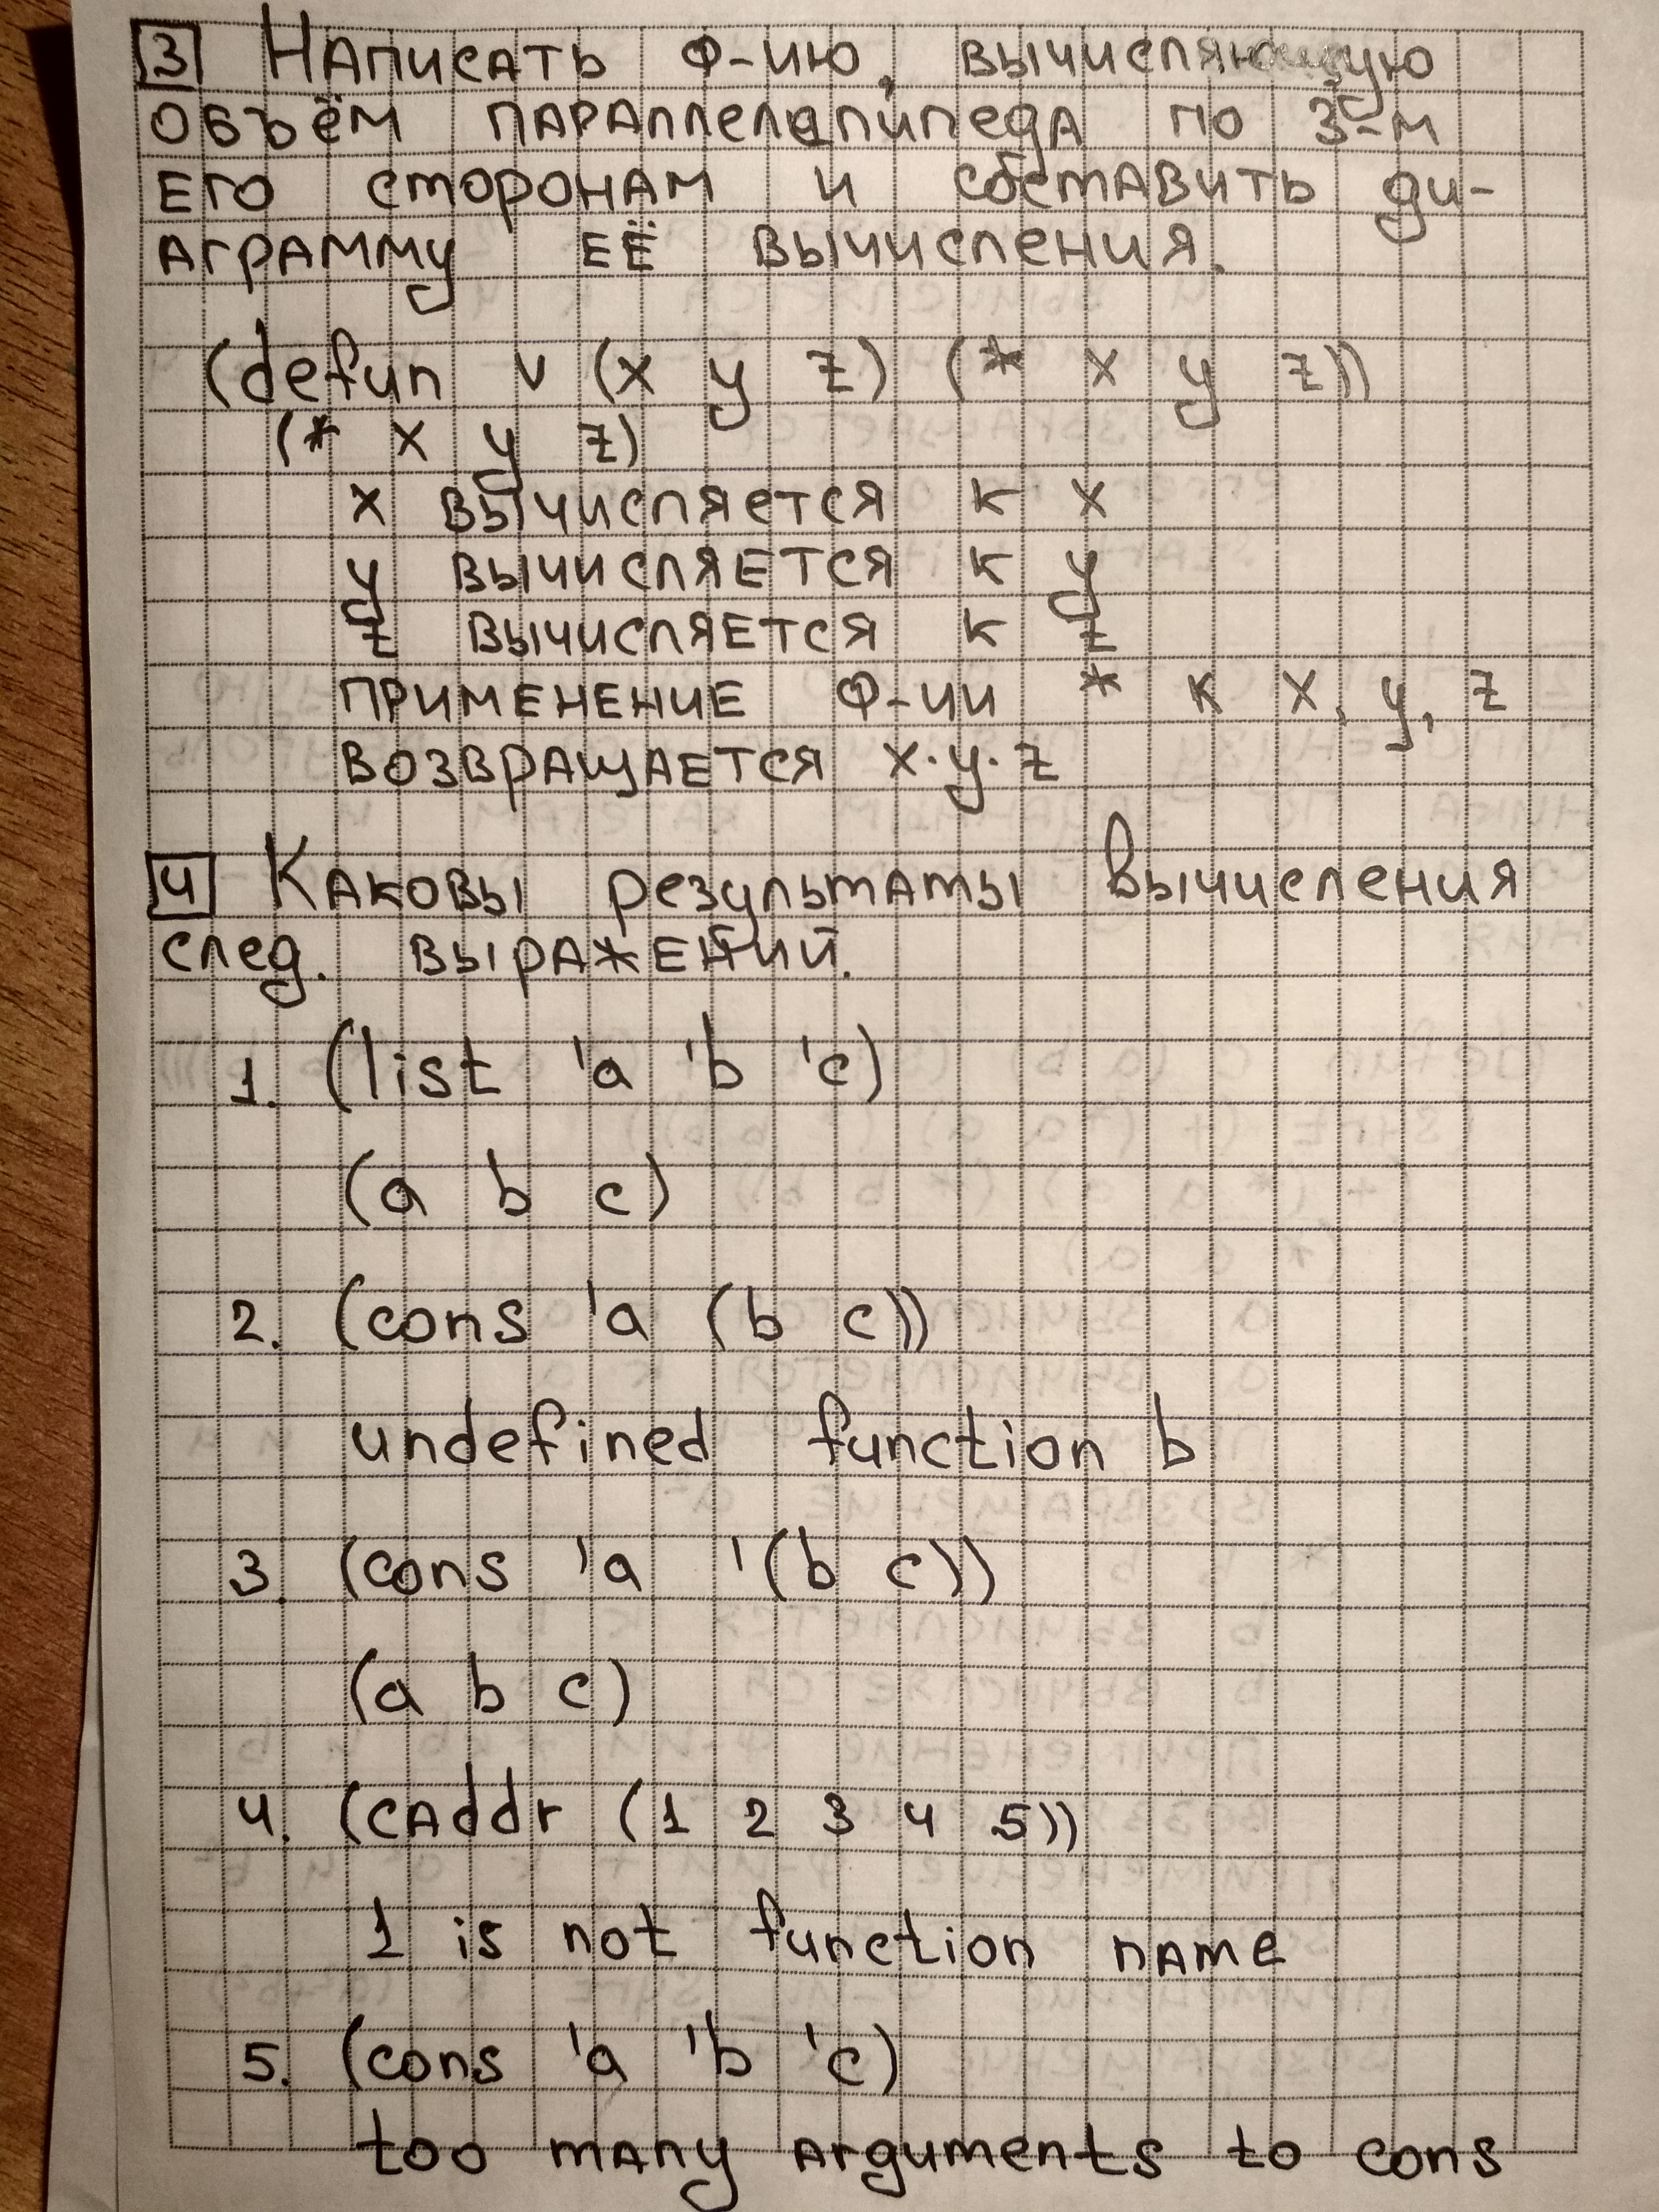 3 Написать ф-ию, вычисляющую
объём параллелепипеда по 3-м
его сторонам и составить ди-
аграмму её вычисления.
(defun v (x y z) (* x y z))
(* x y z)
x вычисляется к x
y вычисляется к y
z вычисляется к z
применение ф-ии * к x, y, z
возвращается x·y·z
4 Каковы результаты вычисления
след. выражений.
1. (list 'a 'b 'c)
(a b c)
2. (cons 'a (b c))
undefined function b
3 (cons 'a '(b c))
(a b c)
4. (caddr (1 2 3 4 5))
1 is not function name
5. (cons 'a 'b 'c)
too many arguments to cons